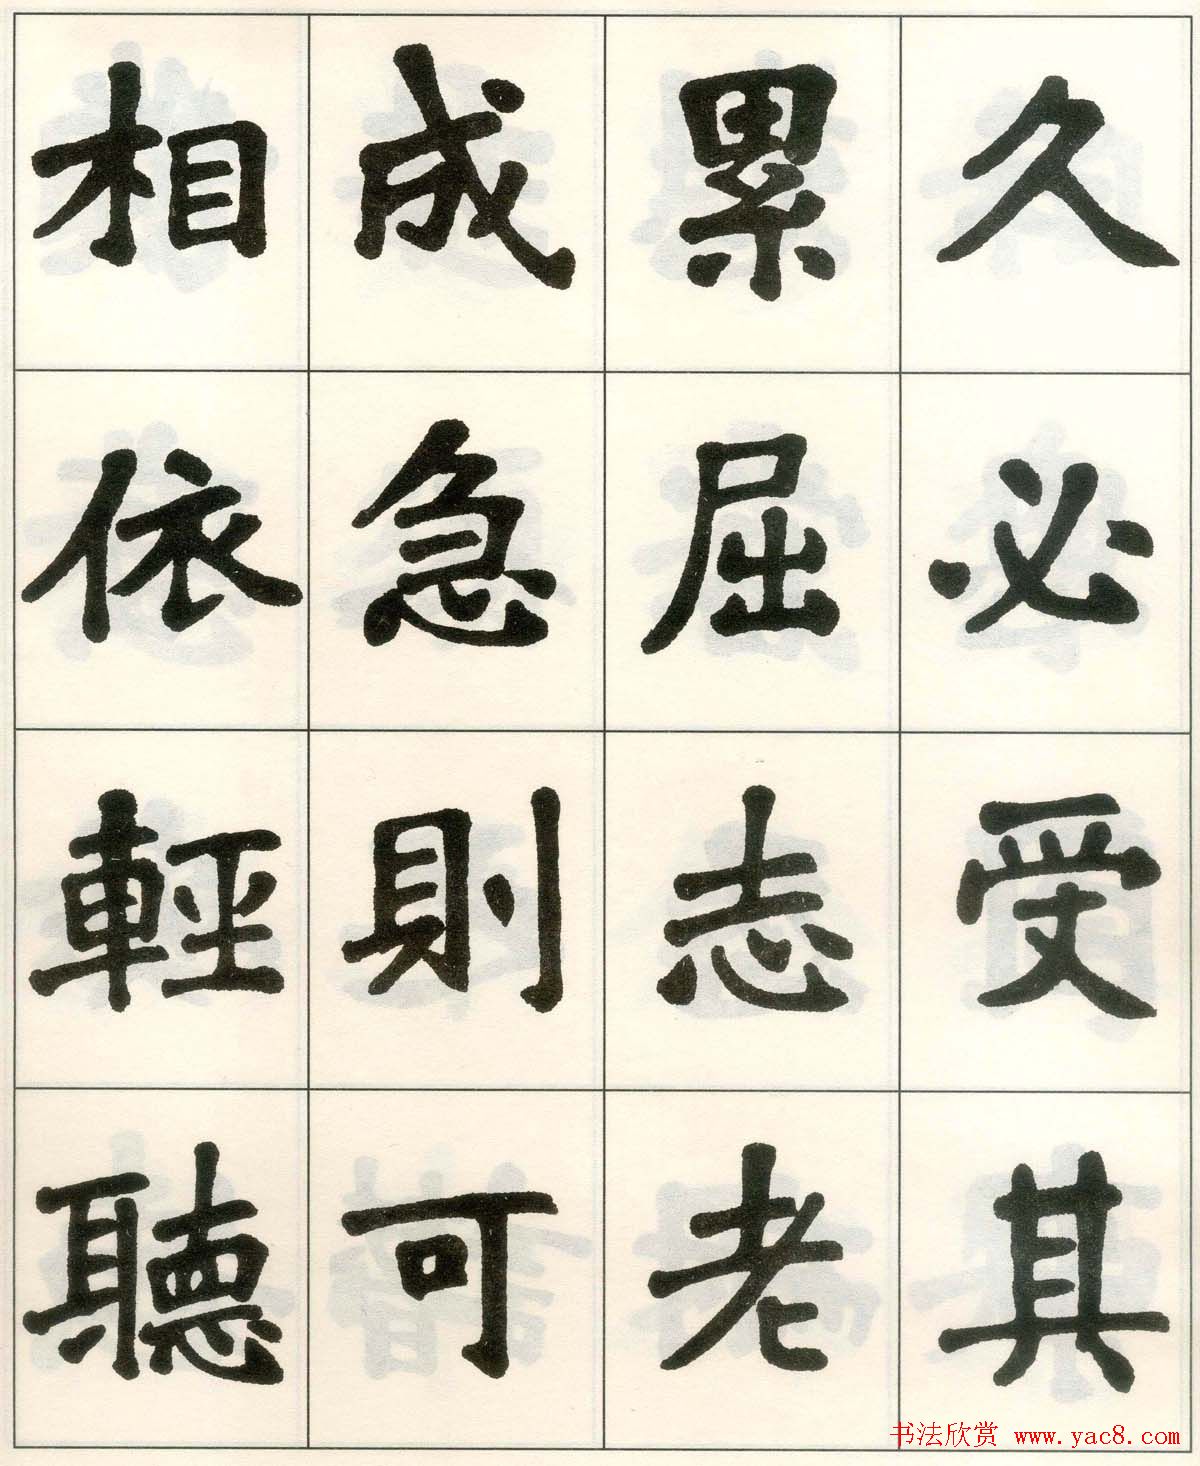 久必受其
累屈志老
成急則可
相依輕聽
书法欣赏 www.yac8.com